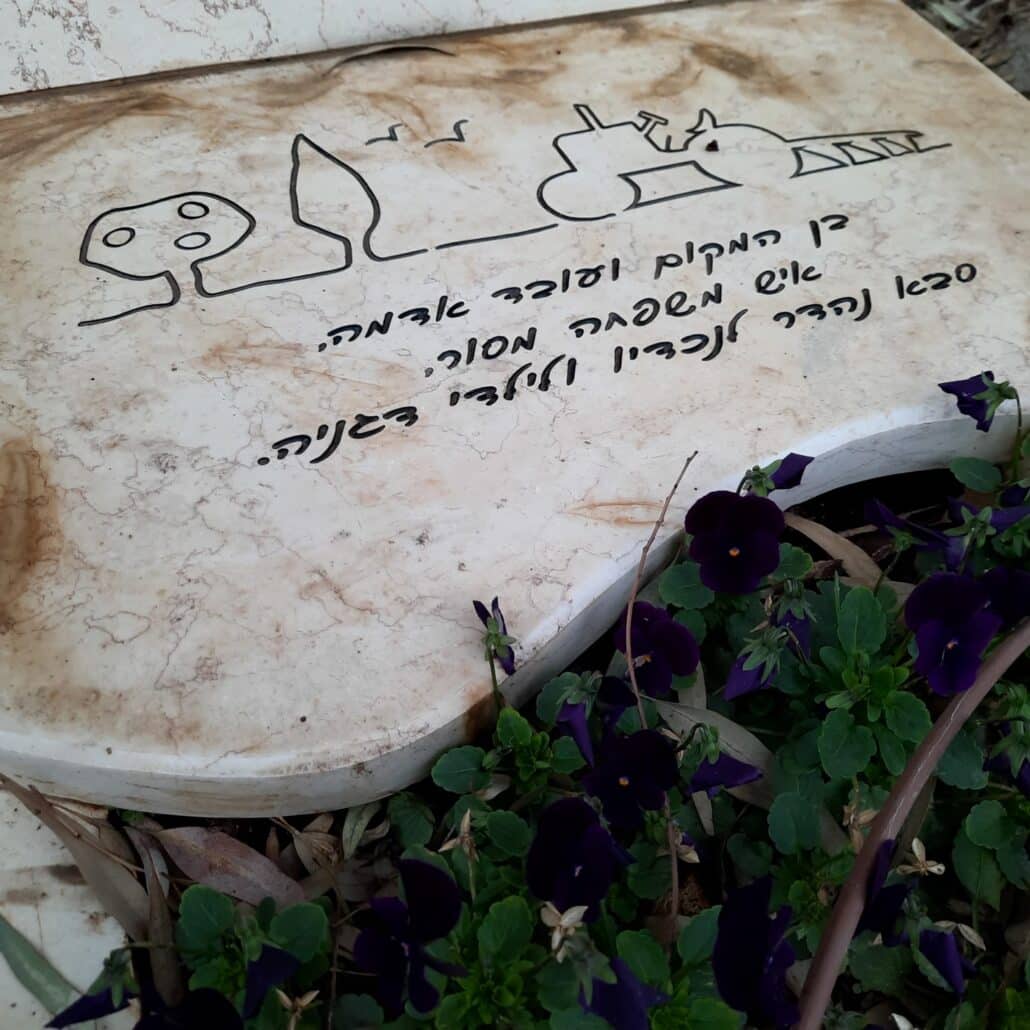 בן המקום ועובד אדמה.
איש משפחה מסור.
סבא נהדר לנכדיו ולילדי דגניה.